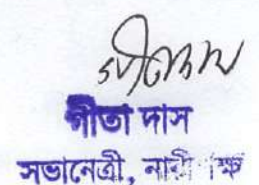 গীতা দাস
সভানেত্রী, নারীপক্ষ